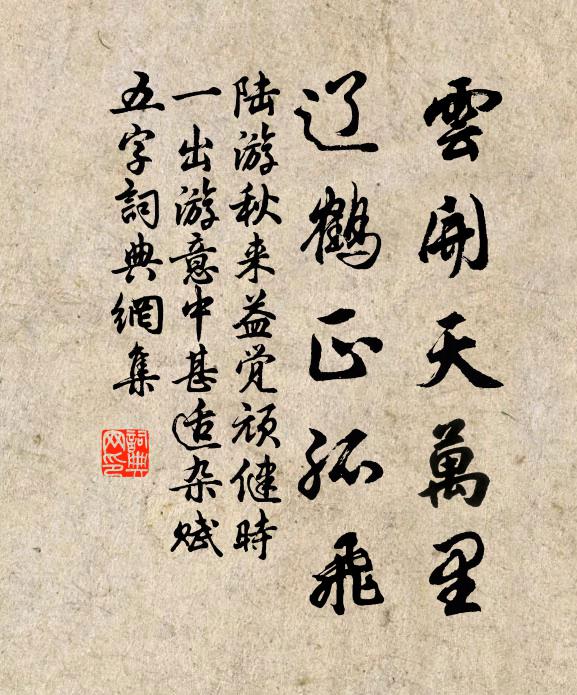 雲開天萬里
辽鶴正孤飛
陆游秋来益觉顽健時
一出游意中甚适杂赋
五字詞典網集
詞典
网印